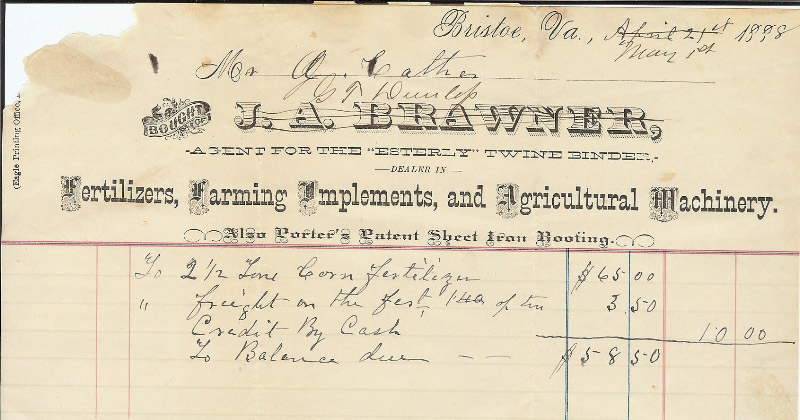 Bristoe, Va., April 21st 1898
May 1st
Mr G. Cather
G T Dunlop
BOUGHT OF
J. A. BRAWNER,
-AGENT FOR THE "ESTERLY" TWINE BINDER,-
—DEALER IN—
Fertilizers, Farming Implements, and Agricultural Machinery.
Also Porter's Patent Sheet Iron Roofing.
(Eagle Printing Office,
To 2 1/2 Tons Corn fertilizer $65 00
" freight on the fert, of 3 50
Credit By Cash 10 00
To Balance due — — $58 50